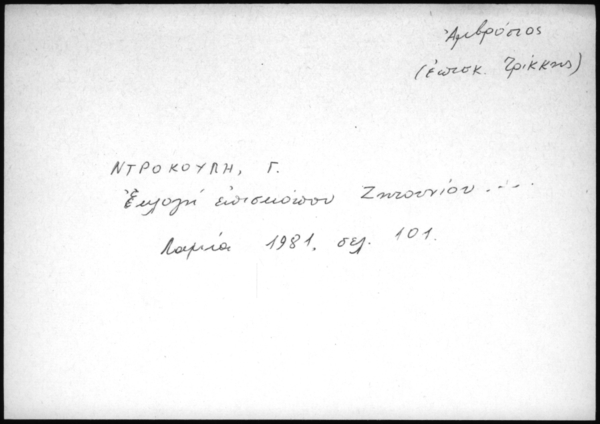 Ἀμβρόσιος
(ἐπισκ. Τρίκκης)
ΝΤΡΟΚΟΥΠΗ, Γ.
Ἐκλογή ἐπισκόπου Ζητουνίου....
Λαμία 1981, σελ. 101.